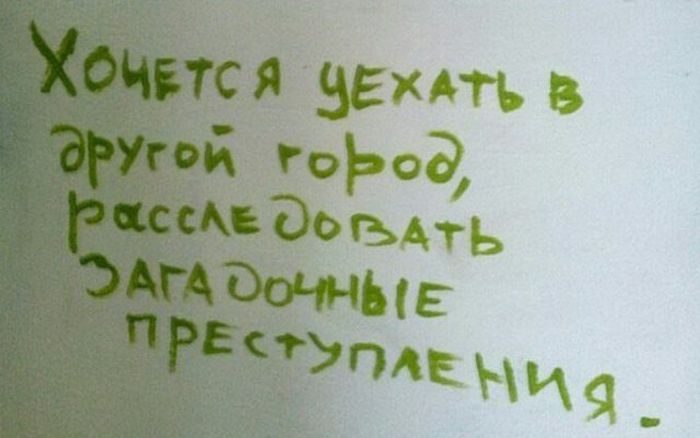 Хочется уехать в
другой город,
расследовать
загадочные
преступления.